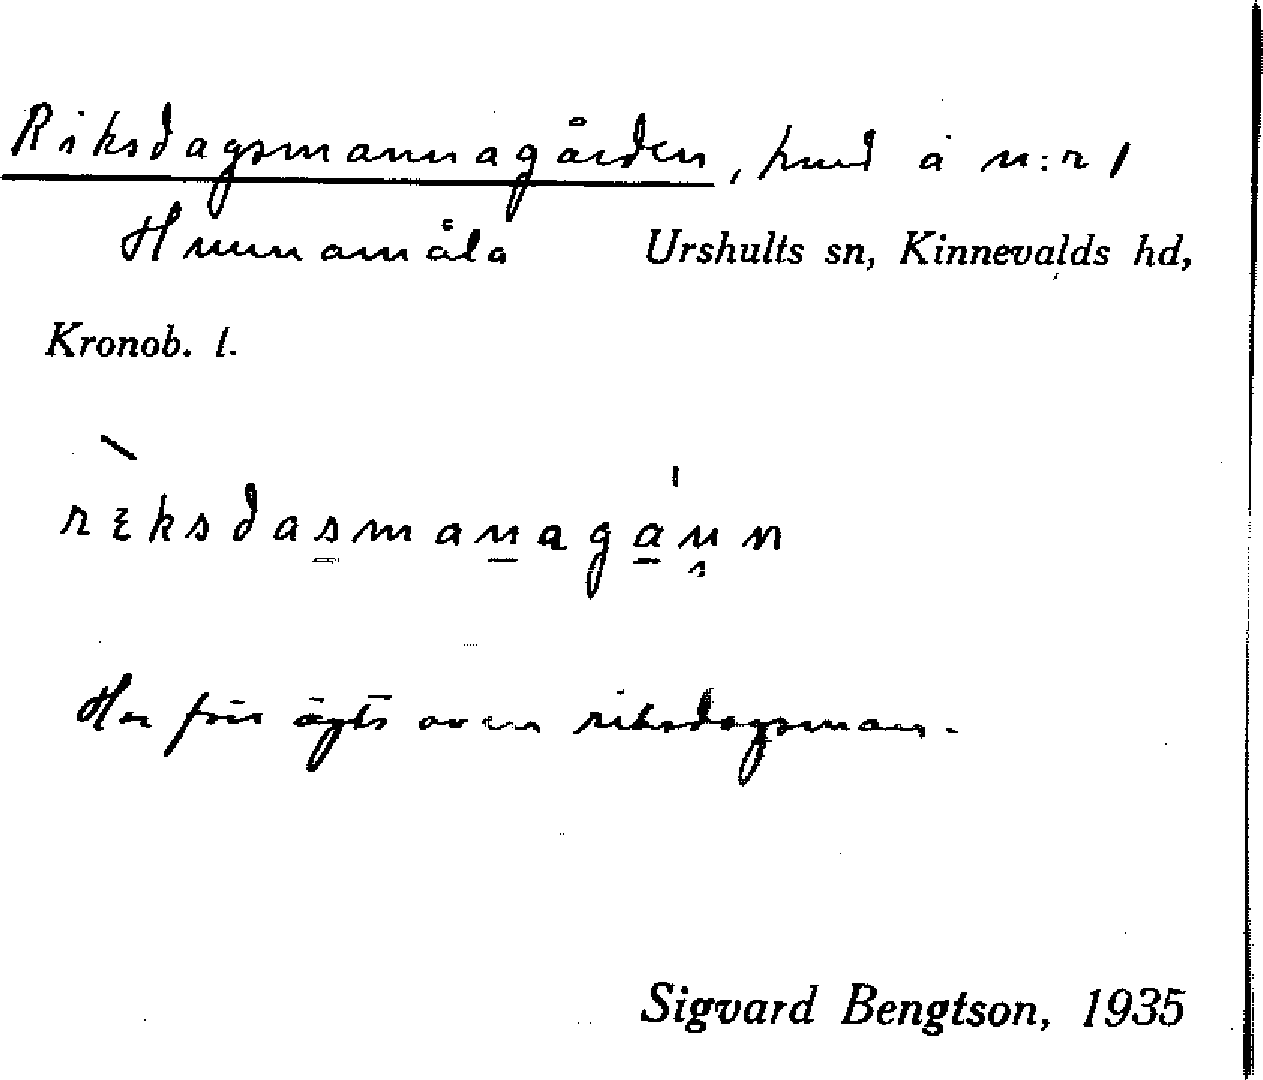 Riksdagsmannagården, hmd å n:r 1
Hunnamåla Urshults sn, Kinnevalds hd,
Kronob. l.
rɛksdasmanagann
Har förr ägts av en riksdagsman.
Sigvard Bengtson, 1935